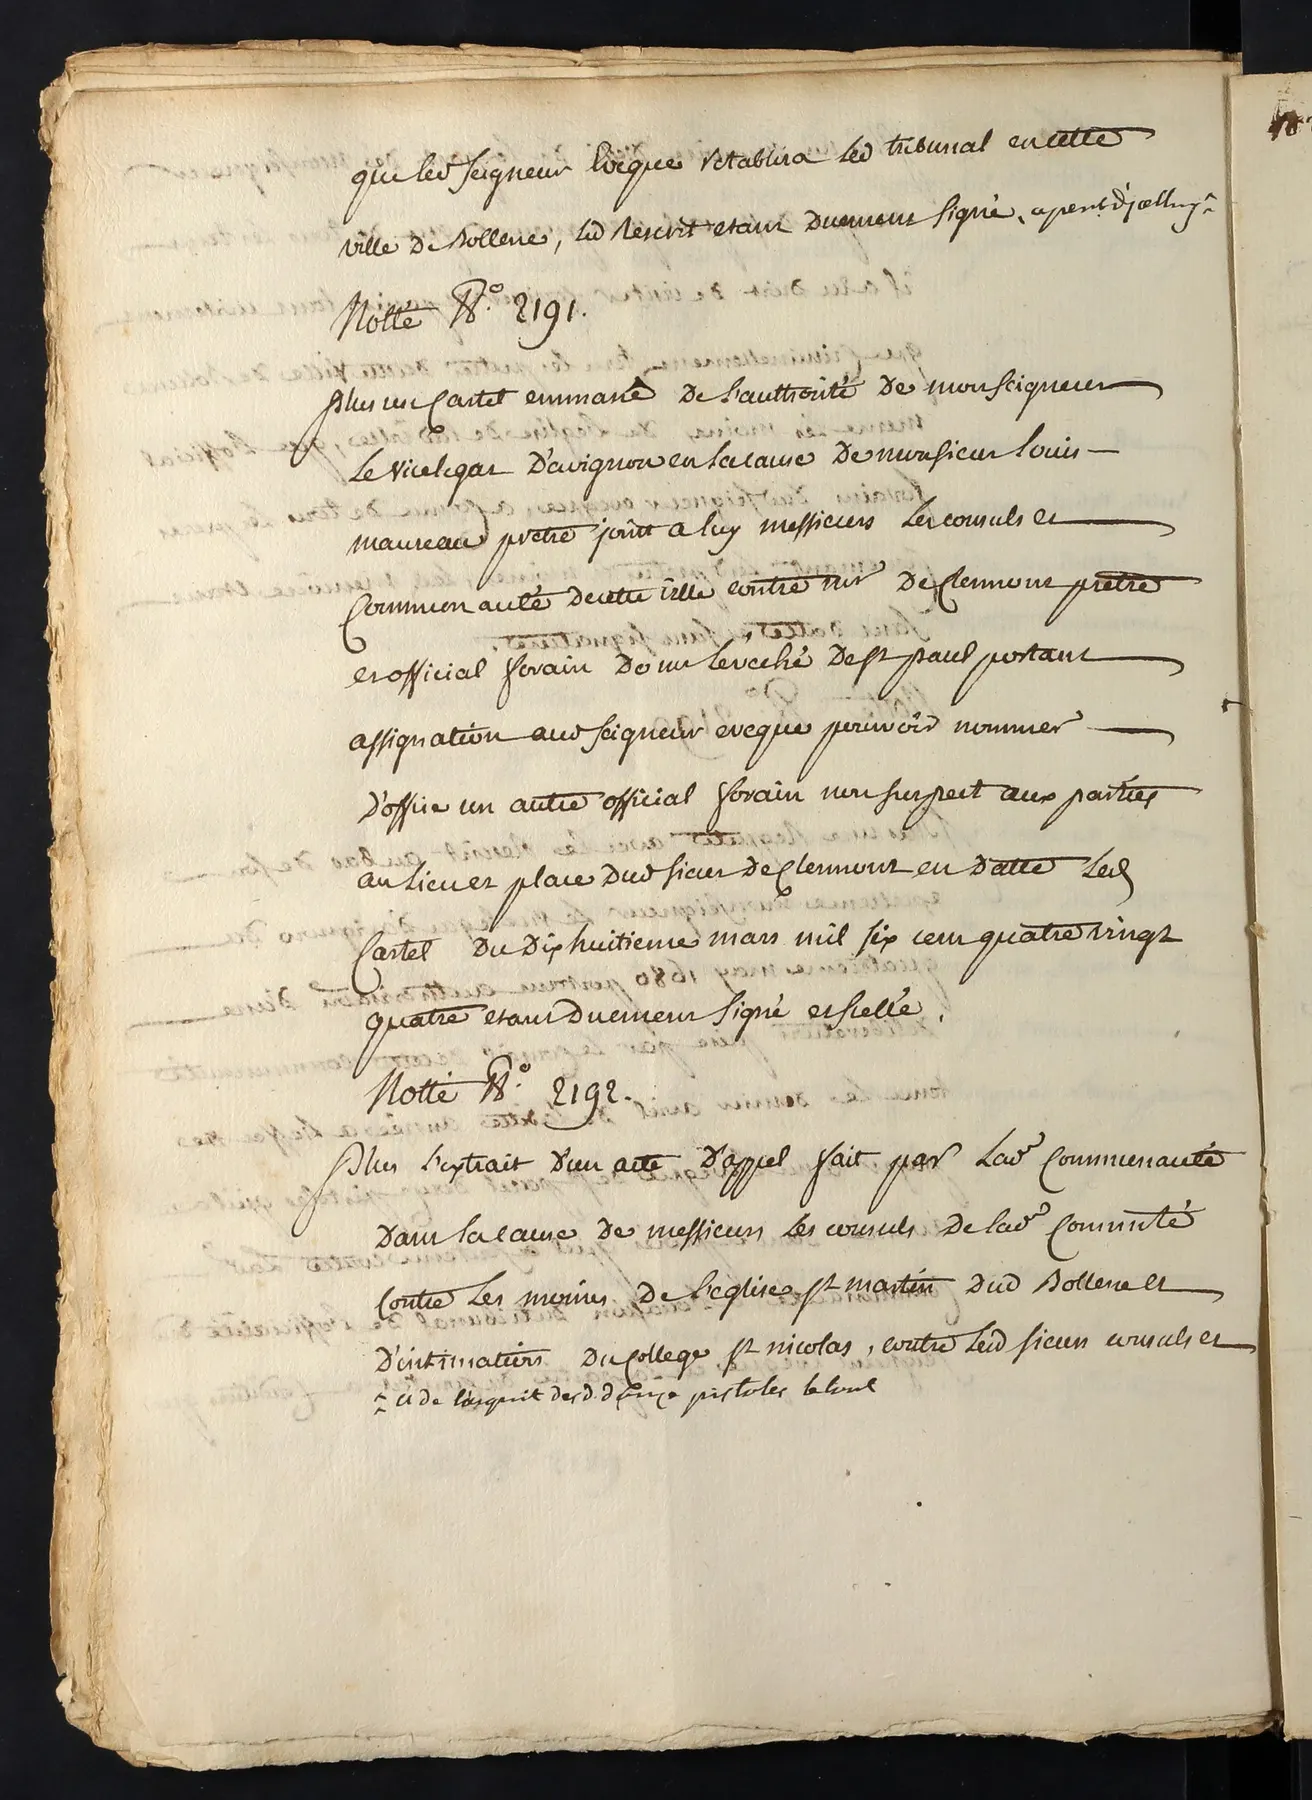 que led seigneur Eveque retablira led tribunal en cette
ville de Bollene, led Rescrit etant duement signé,
Notté N.° 2191.
Plus un Cartel emmané de l'authorité de monseigneur
Le Vicelegat D'avignon en la cause de monsieur Louis
maureau prêtre joint a luy messieurs Les consuls et
Communauté de cette ville contre mr De Clermont prêtre
et official forain Do mr l'eveché de st paul portant
assignation aud seigneur eveque pouvoir nommer
D'office un autre official forain non suspect aux parties
au lieu et place Dud sieur De Clermont en Datte Led
Cartel Du Dix huitieme mars mil six cent quatre vingt
quatre etant Duement signé et scellé.
Notté N.° 2192.
Plus l'extrait d'un acte D'appel fait par Lade Communauté
Dans la cause de messieurs Les consuls de lade Commnté
Contre Les moines De l'eglise st martin Dud Bollene et
D'intimation Du College st nicolas, contre Led sieurs consuls et
et de l'acquit des d. d pistoles le tout